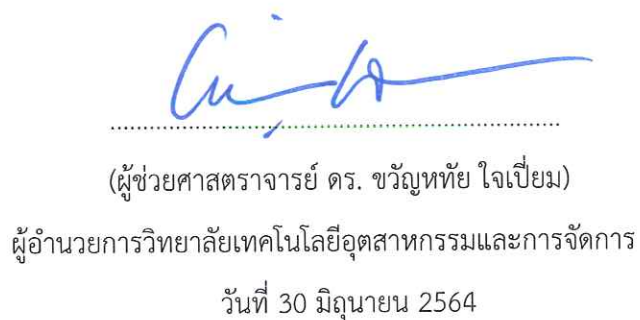 (ผู้ช่วยศาสตราจารย์ ดร. ขวัญหทัย ใจเปี่ยม)
ผู้อำนวยการวิทยาลัยเทคโนโลยีอุตสาหกรรมและการจัดการ
วันที่ 30 มิถุนายน 2564